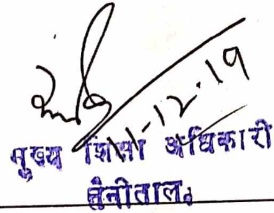 11-12-19
मुख्य शिक्षा अधिकारी
नैनीताल।